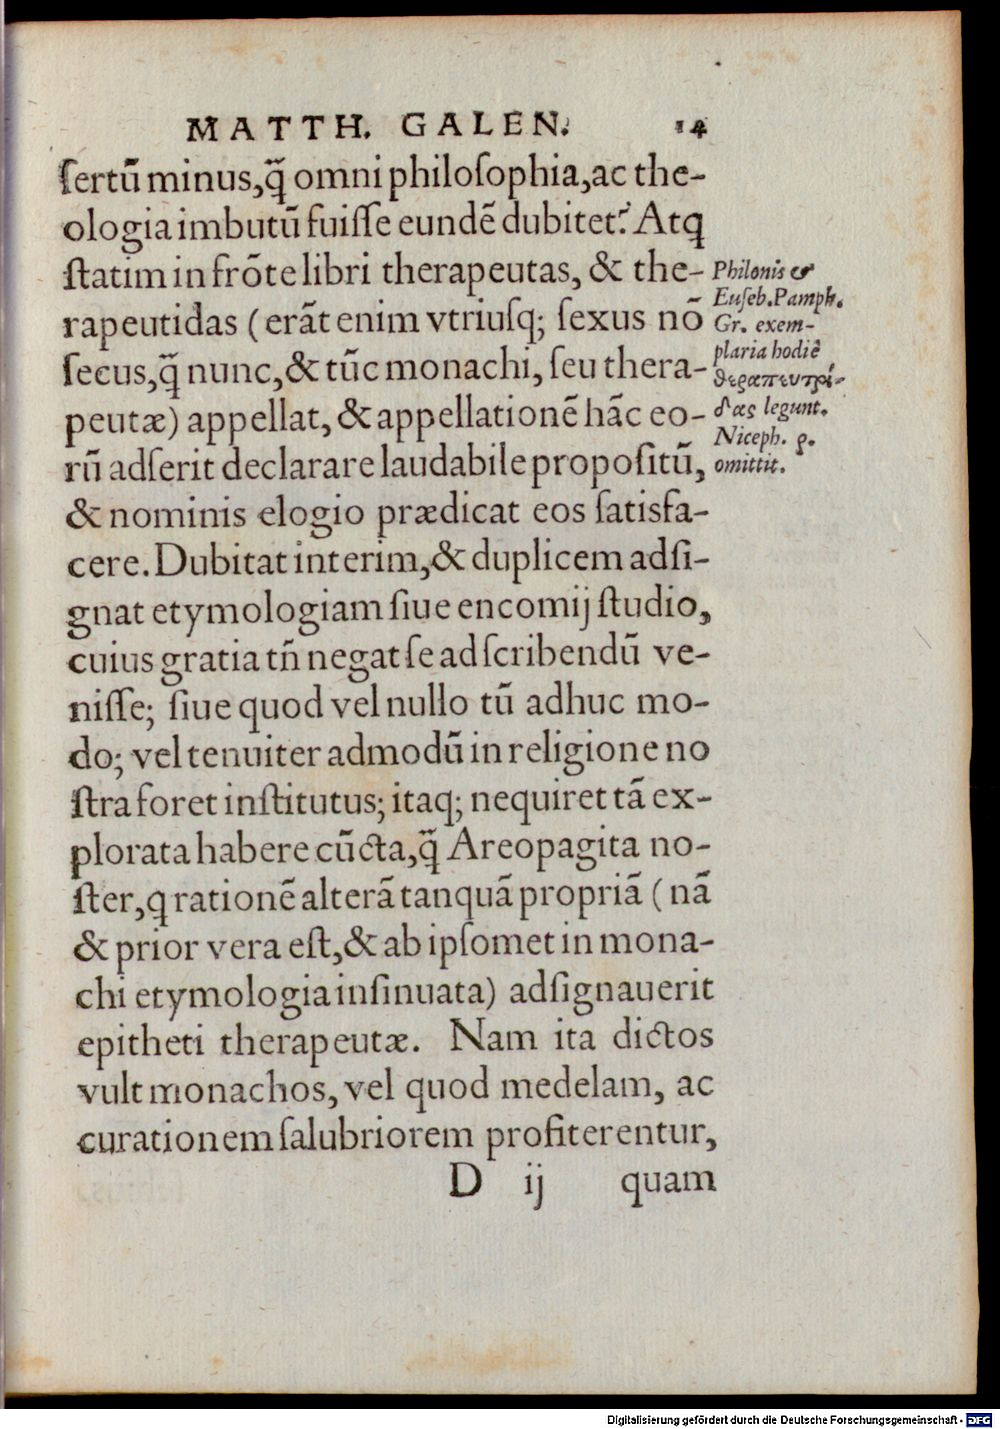 MATTH. GALEN. 14
ſertū minus, q̄ omni philoſophia, ac the-
ologia imbutū fuiſſe eundē dubitet? Atq
ſtatim in frōte libri therapeutas, & the-
rapeutidas (erāt enim vtriuſq; ſexus nō
ſecus, q̄ nunc, & tūc monachi, ſeu thera-
peutæ) appellat, & appellationē hāc eo-
rū adſerit declarare laudabile propoſitū,
& nominis elogio prædicat eos ſatisfa-
cere. Dubitat interim, & duplicem adſi-
gnat etymologiam ſiue encomij ſtudio,
cuius gratia tn̄ negat ſe ad ſcribendū ve-
niſſe; ſiue quod vel nullo tū adhuc mo-
do; vel tenuiter admodū in religione no
ſtra foret inſtitutus; itaq; nequiret tā ex-
plorata habere cūcta, q̄ Areopagita no-
ſter, q rationē alterā tanquā propriā (nā
& prior vera eſt, & ab ipſomet in mona-
chi etymologia inſinuata) adſignauerit
epitheti therapeutæ. Nam ita dictos
vult monachos, vel quod medelam, ac
curationem ſalubriorem profiterentur,
D ij quam
Philonis &
Euſeb. Pamph.
Gr. exem-
plaria hodiè
θεραπευτρί-
δας legunt.
Niceph. ρ.
omittit.
Digitalisierung gefördert durch die Deutsche Forschungsgemeinschaft - DFG